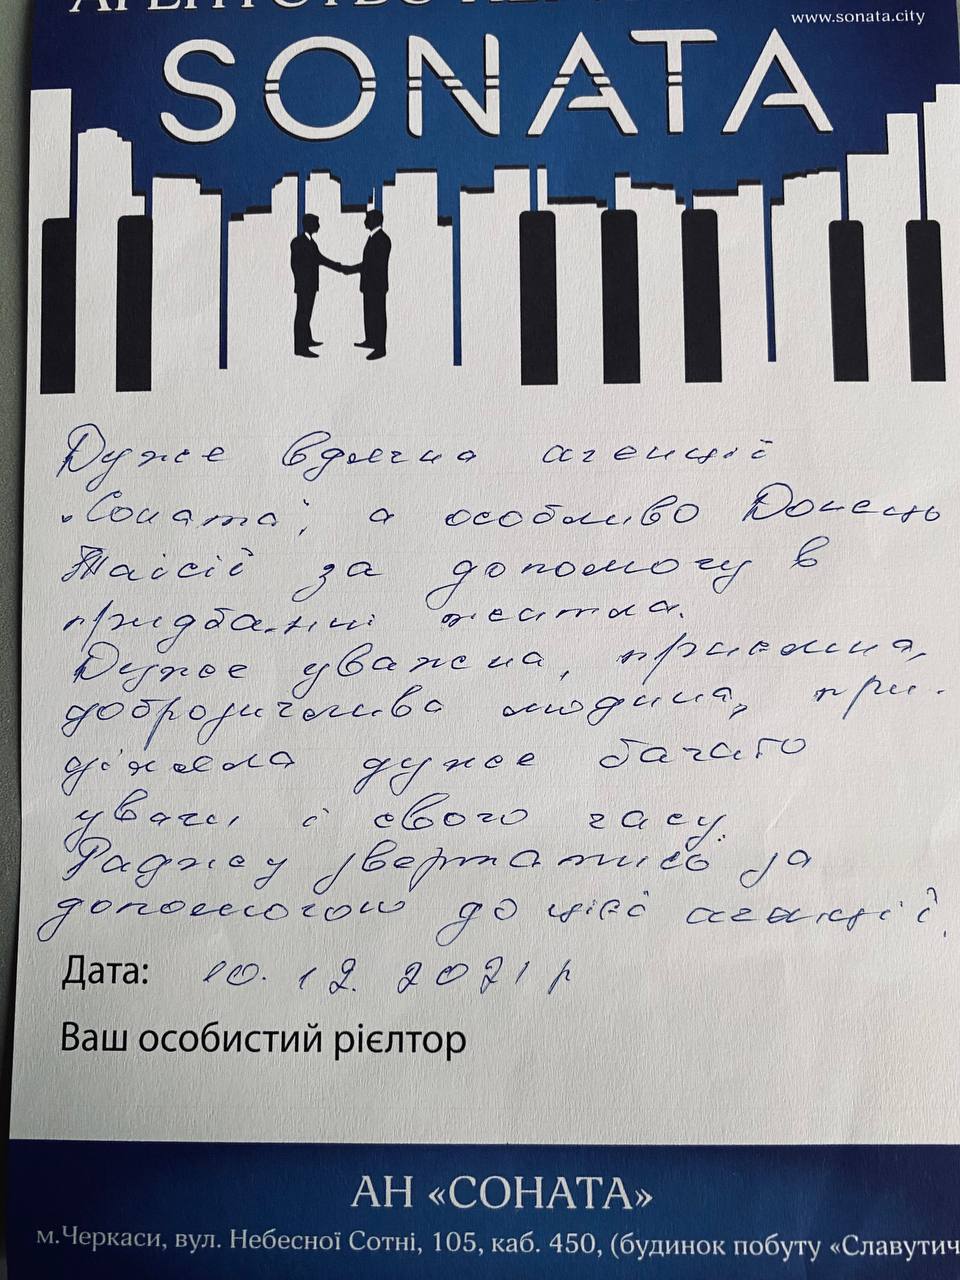 АГЕНТСТВО
www.sonata.city
SONATA
Дуже вдячна агенції
"Соната", а особливо Донець
Таісії за допомогу в
придбанні житла.
Дуже уважна, приємна,
доброзичлива людина, при-
діляла дуже багато
уваги і свого часу.
Раджу звертатись за
допомогою до цієї агенції.
Дата: 10. 12. 2021 р
Ваш особистий рієлтор
АН «СОНАТА»
м.Черкаси, вул. Небесної Сотні, 105, каб. 450, (будинок побуту «Славутич